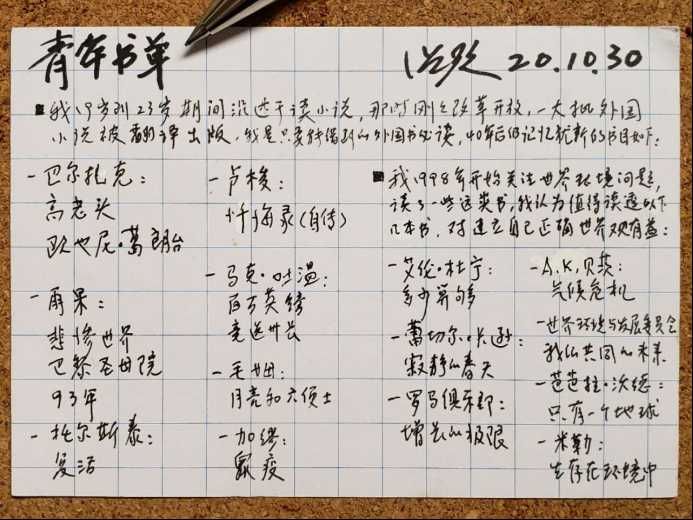 青年书单
20.10.30
我19岁到23岁期间沉迷于读小说，那时刚是改革开放，一大批外国
小说被翻译出版，我是只要能借到的外国书必读，40年后但记忆犹新的书目如下：
－巴尔扎克：
高老头
欧也尼·葛朗台
－雨果：
悲惨世界
巴黎圣母院
93年
－托尔斯泰：
复活
－卢梭：
忏悔录（自传）
－马克·吐温：
百万英镑
竞选州长
－毛姆：
月亮和六便士
－加缪：
鼠疫
我1998年开始关注世界环境问题，
读了一些这类书，我认为值得读透以下
几本书，对建立自己正确世界观有益：
－艾伦·杜宁：
多少算够
－蕾切尔·卡逊：
寂静的春天
－罗马俱乐部：
增长的极限
－A.K.贝茨：
气候危机
－世界环境与发展委员会
我们共同的未来
－芭芭拉·沃德：
只有一个地球
－米勒：
生存在环境中